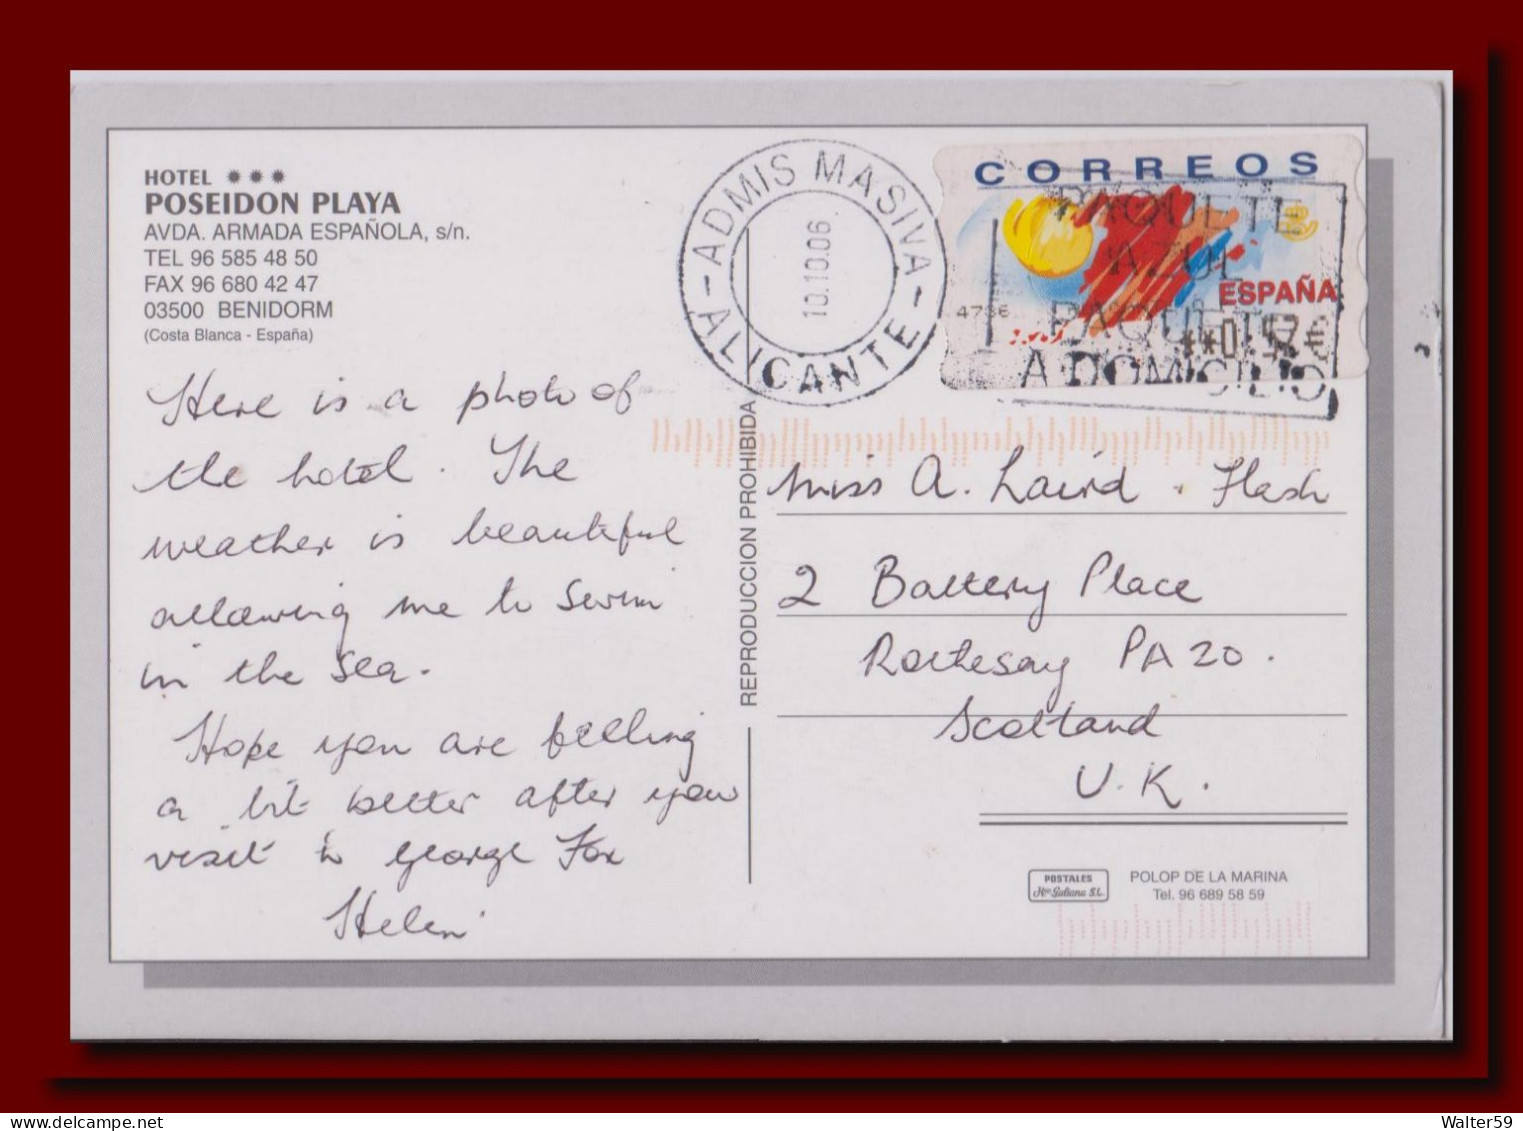 HOTEL ***
POSEIDON PLAYA
AVDA. ARMADA ESPAÑOLA, s/n.
TEL 96 585 48 50
FAX 96 680 42 47
03500 BENIDORM
(Costa Blanca - España)
Here is a photo of
the hotel. The
weather is beautiful
allowing me to swim
in the sea.
Hope you are feeling
a bit better after your
visit to George Fox
Helen
REPRODUCCION PROHIBIDA
- ADMIS MASIVA -
10.10.06
ALICANTE
CORREOS
ESPAÑA
4736
**0,57€
PAQUETE
AZUL
PAQUETE
A DOMICILIO
Miss A. Laird. Flash
2 Battery Place
Rothesay PA20.
Scotland
U.K.
POSTALES
Hnos Galiana S.L.
POLOP DE LA MARINA
Tel. 96 689 58 59
Walter59